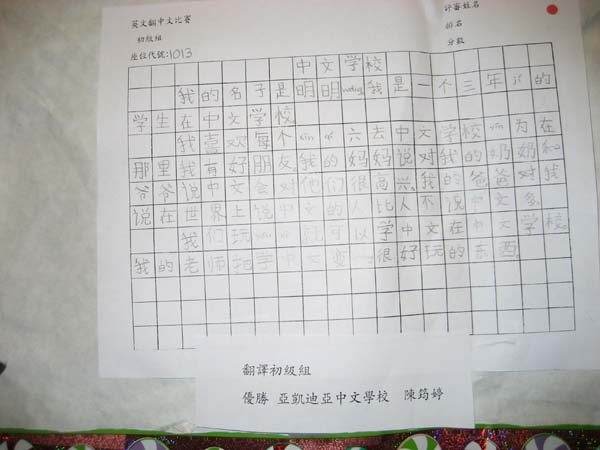 英文翻中文比賽
初級組
座位代號:1013
評審姓名
排名
分數
中文学校
我的名子是明明 我是一个三年 的
学生在中文学校
我喜欢每个 六去中文学校 为在
那里我有好朋友。我的妈妈说对我的奶奶和
爷爷说中文会对他们很高兴。我的爸爸对我
说在世界上说中文的人比人不说中文多。
我们玩 就可以学中文在中文学校。
我的老师 学中文变 很好玩的东西。
翻譯初級組
優勝 亞凱迪亞中文學校 陳筠婷